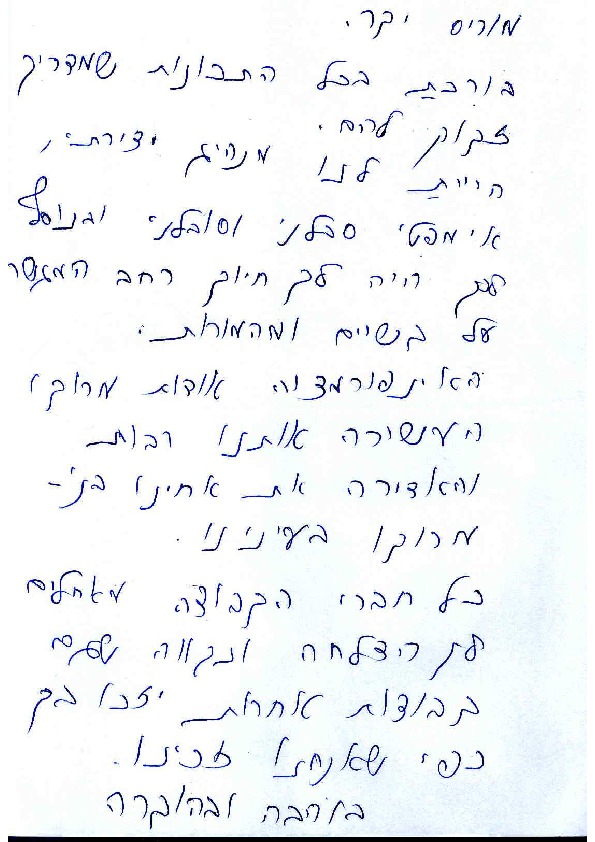 מוריס יקר.
בורכתָ בכל התכונות שמדריך
זקוק להם.
היית לנו מנהיג יצירתי,
אימפטי סבלני וסובלני ובנוסף
לכך היה לך חיוך רחב המגשר
על קשיים ומהמורות.
האינפורמציה אודות מרוקו
העשירה אותנו רבות
והאדירה את אחינו בני-
מרוקו בעינינו.
כל חברי הקבוצה מאחלים
לך הצלחה ונקווה שגם
קבוצות אחרות יזכו בך
כפי שאנחנו זכינו.
באהבה ובהוקרה